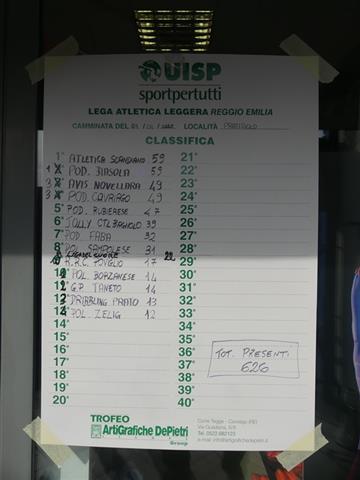 UISP
sportpertutti
LEGA ATLETICA LEGGERA REGGIO EMILIA
CAMMINATA DEL LOCALITÀ
CLASSIFICA
1° ATLETICA SCANDIANO 59
1 POD. BIASOLA 59
3 AVIS NOVELLARA 49
3 POD. CAVRIAGO 49
5° POD. RUBIERESE 47
6° JOLLY CTL BAGNOLO 39
7° POD. FABA 32
8° POL. SAMPOLESE 31
LEGA DEL CUORE 22
10 G.R.C. POVIGLIO 17
POL. BORZANESE 14
G.P. TANETO 14
DRIBBLING PRATO 13
POL. ZELIG 12
14°
15°
16°
17°
18°
19°
20°
21°
22°
23°
24°
25°
26°
27°
28°
29°
30°
31°
32°
33°
34°
35°
36°
37°
38°
39°
40°
TOT. PRESENTI
626
TROFEO
ArtiGrafiche DePietri
Group
Corte Tegge - Cavriago (RE)